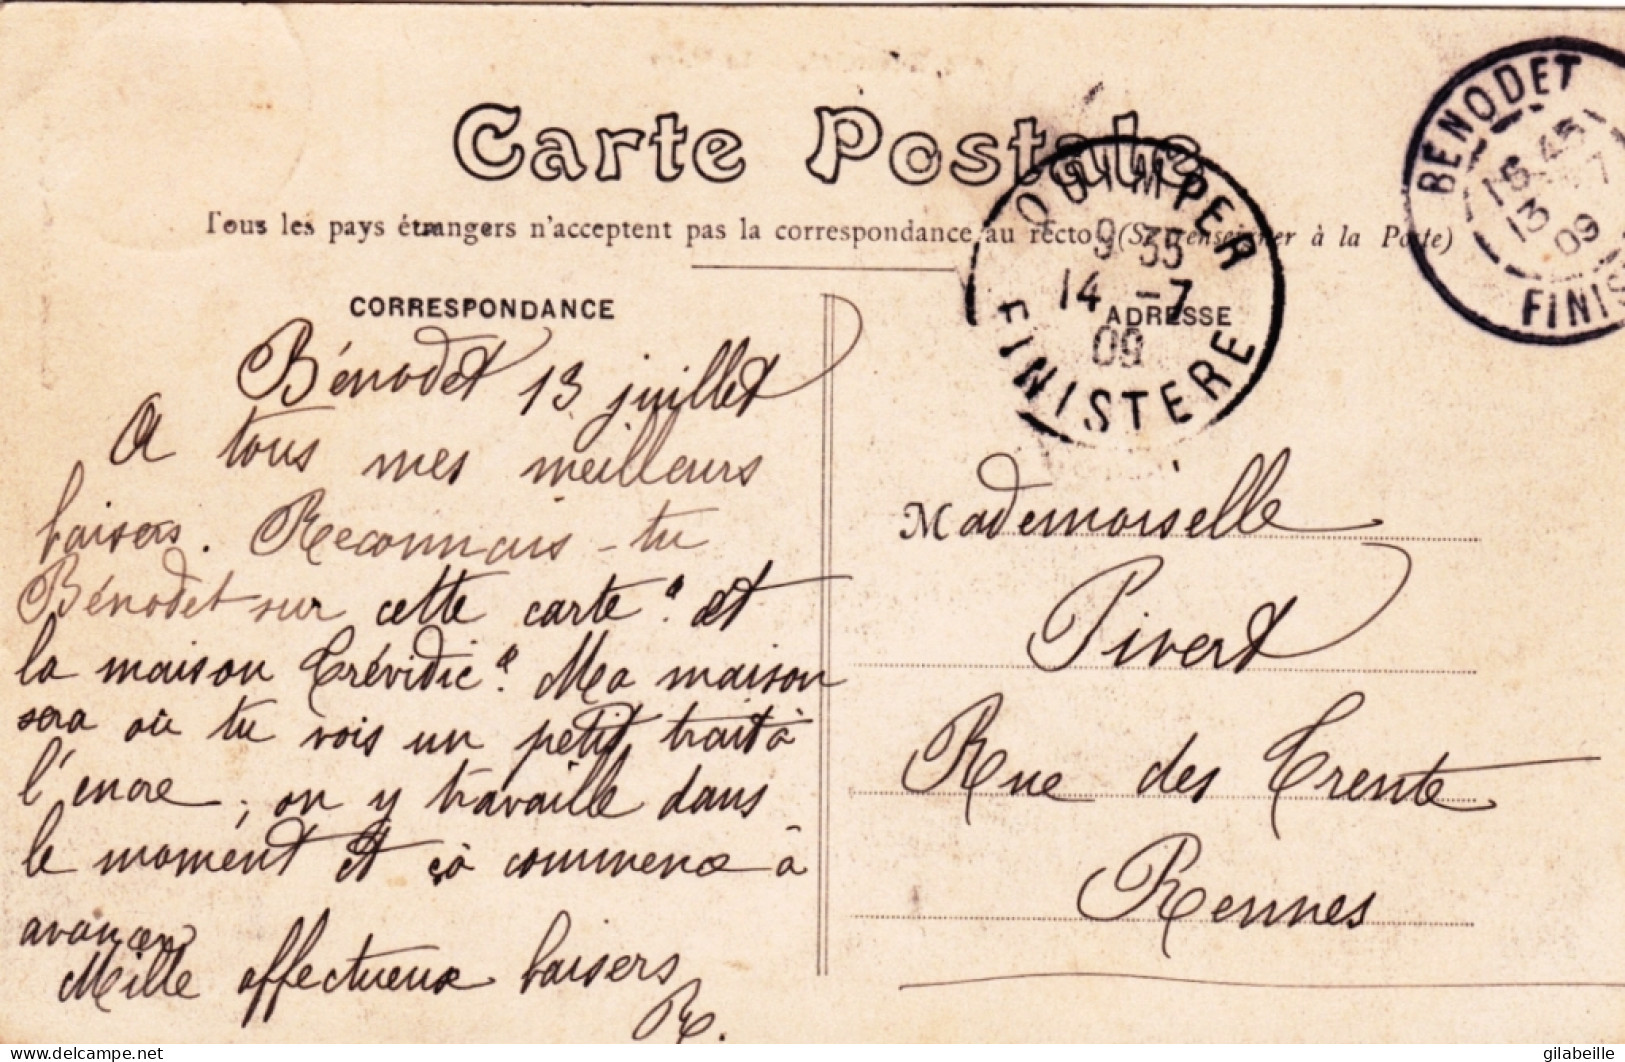 Carte Postale
Tous les pays étrangers n'acceptent pas la correspondance au recto (Se renseigner à la Poste)
CORRESPONDANCE
Bénodet 13 juillet
A tous mes meilleurs
baisers. Reconnais-tu
Bénodet sur cette carte? et
la maison Trévidic? Ma maison
sera où tu vois un petit trait à
l'encre, on y travaille dans
le moment et çà commence à
avancer
Mille affectueux baisers
R.
ADRESSE
Mademoiselle
Pivert
Rue des Trente
Rennes
QUIMPER
9 35
14 -7
09
FINISTERE
BENODET
16 45
13 -7
09
FINIS
delcampe.net
gilabeille